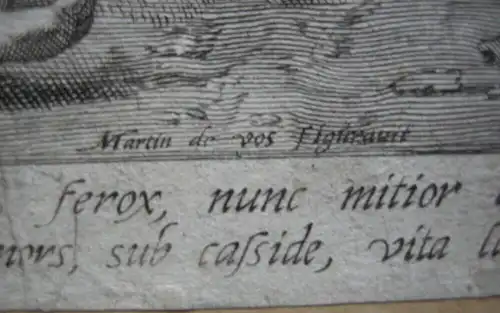 Martin de vos Figuravit
ferox, nunc mitior
mors, sub caſside, vita